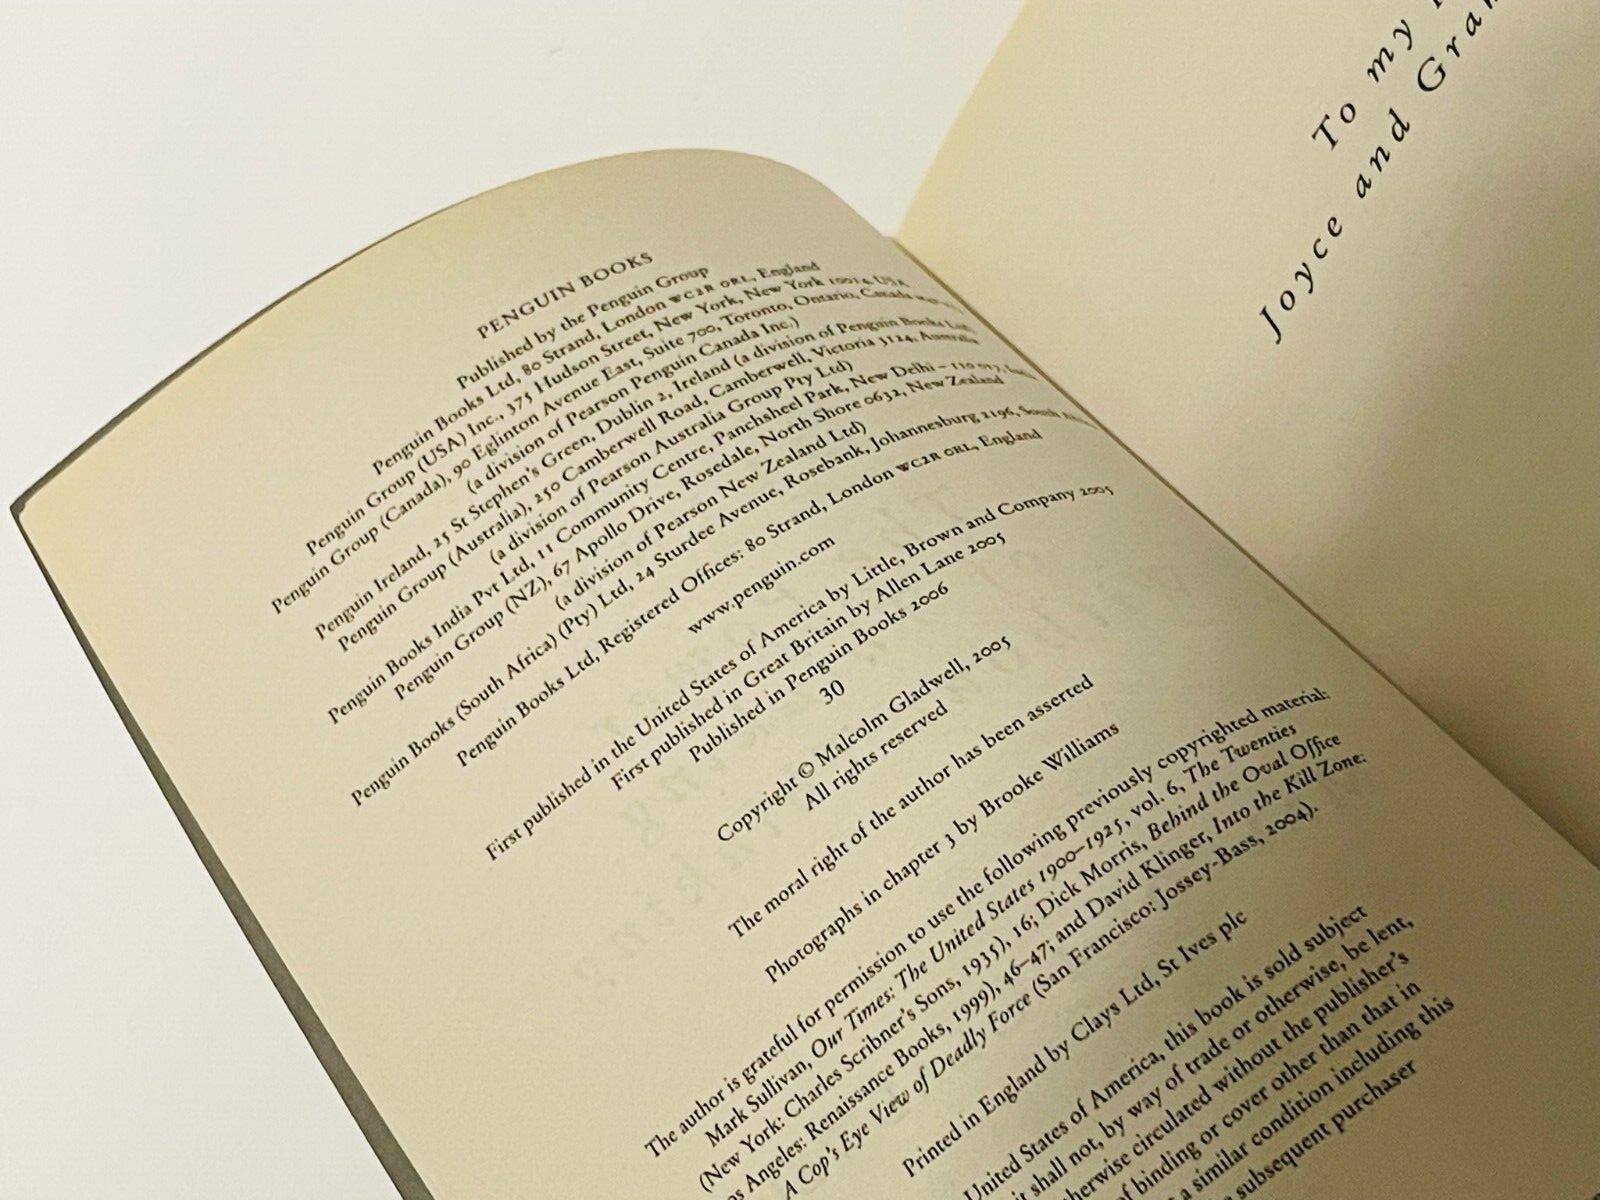 PENGUIN BOOKS
Published by the Penguin Group
Penguin Books Ltd, 80 Strand, London WC2R 0RL, England
Penguin Group (USA) Inc., 375 Hudson Street, New York, New York 10014, USA
Penguin Group (Canada), 90 Eglinton Avenue East, Suite 700, Toronto, Ontario, Canada
(a division of Pearson Penguin Canada Inc.)
Penguin Ireland, 25 St Stephen's Green, Dublin 2, Ireland (a division of Penguin Books Ltd)
Penguin Group (Australia), 250 Camberwell Road, Camberwell, Victoria 3124, Australia
(a division of Pearson Australia Group Pty Ltd)
Penguin Books India Pvt Ltd, 11 Community Centre, Panchsheel Park, New Delhi – 110 017,
Penguin Group (NZ), 67 Apollo Drive, Rosedale, North Shore 0632, New Zealand
(a division of Pearson New Zealand Ltd)
Penguin Books (South Africa) (Pty) Ltd, 24 Sturdee Avenue, Rosebank, Johannesburg 2196, South
Penguin Books Ltd, Registered Offices: 80 Strand, London WC2R 0RL, England
www.penguin.com
First published in the United States of America by Little, Brown and Company 2005
First published in Great Britain by Allen Lane 2005
Published in Penguin Books 2006
30
Copyright © Malcolm Gladwell, 2005
All rights reserved
The moral right of the author has been asserted
Photographs in chapter 3 by Brooke Williams
The author is grateful for permission to use the following previously copyrighted material:
Mark Sullivan, Our Times: The United States 1900–1925, vol. 6, The Twenties
(New York: Charles Scribner's Sons, 1935), 16; Dick Morris, Behind the Oval Office
os Angeles: Renaissance Books, 1999), 46–47; and David Klinger, Into the Kill Zone:
A Cop's Eye View of Deadly Force (San Francisco: Jossey-Bass, 2004).
Printed in England by Clays Ltd, St Ives plc
United States of America, this book is sold subject
it shall not, by way of trade or otherwise, be lent,
herwise circulated without the publisher's
f binding or cover other than that in
a similar condition including this
subsequent purchaser
To my
Joyce and Gra